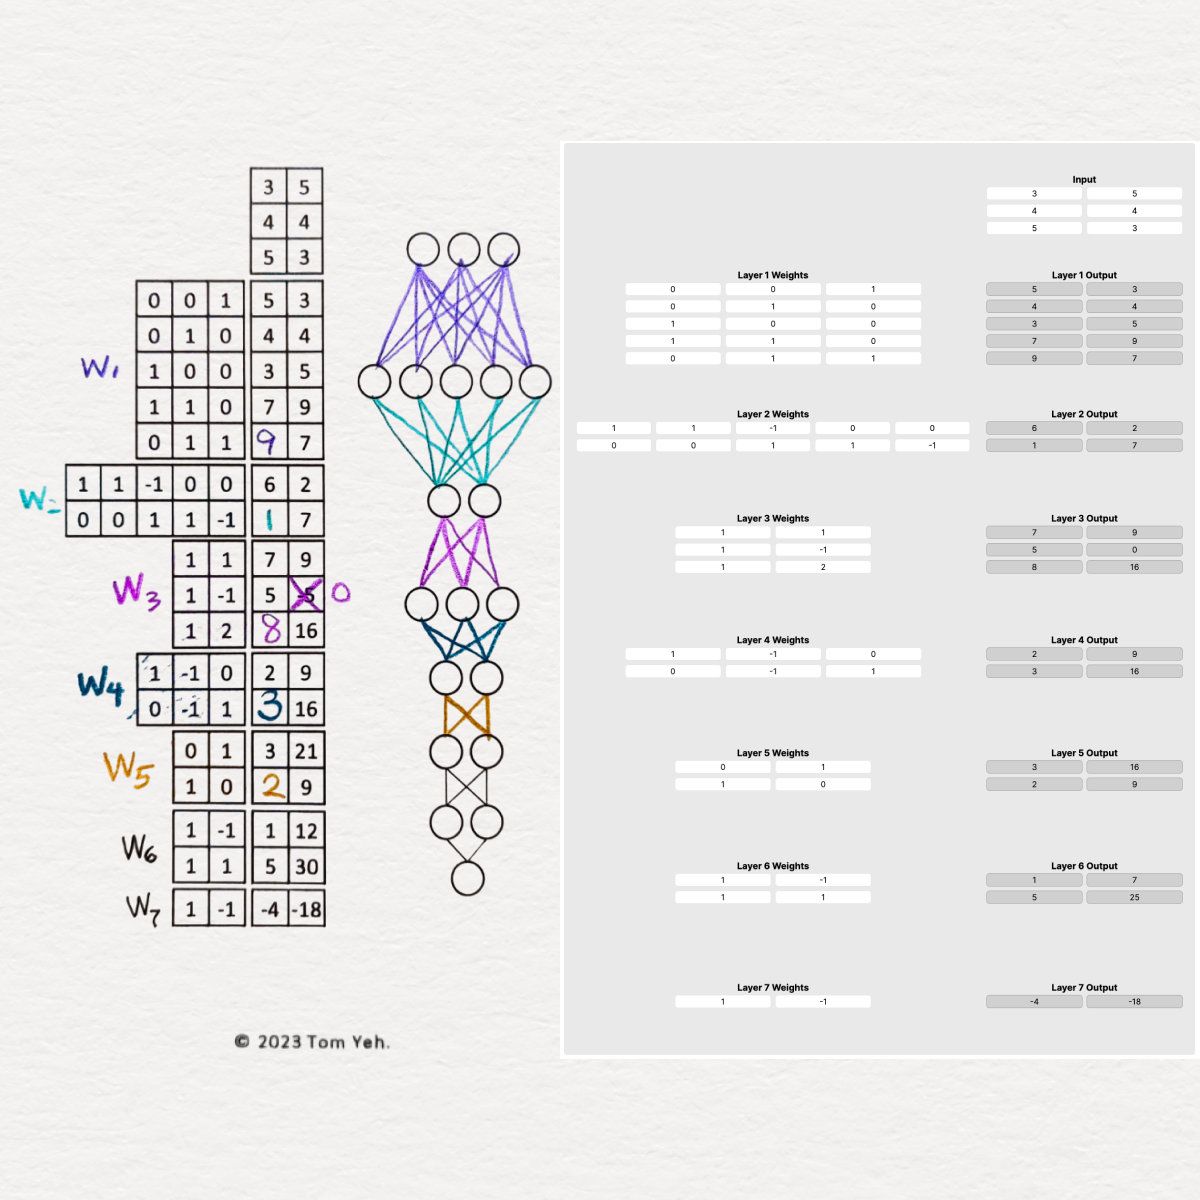 3 5
4 4
5 3
W1
0 0 1 5 3
0 1 0 4 4
1 0 0 3 5
1 1 0 7 9
0 1 1 9 7
W2
1 1 -1 0 0 6 2
0 0 1 1 -1 1 7
W3
1 1 7 9
1 -1 5 -5 0
1 2 8 16
W4
1 -1 0 2 9
0 -1 1 3 16
W5
0 1 3 21
1 0 2 9
W6
1 -1 1 12
1 1 5 30
W7
1 -1 -4 -18
© 2023 Tom Yeh.
Input
3 5
4 4
5 3
Layer 1 Weights
0 0 1
0 1 0
1 0 0
1 1 0
0 1 1
Layer 1 Output
5 3
4 4
3 5
7 9
9 7
Layer 2 Weights
1 1 -1 0 0
0 0 1 1 -1
Layer 2 Output
6 2
1 7
Layer 3 Weights
1 1
1 -1
1 2
Layer 3 Output
7 9
5 0
8 16
Layer 4 Weights
1 -1 0
0 -1 1
Layer 4 Output
2 9
3 16
Layer 5 Weights
0 1
1 0
Layer 5 Output
3 16
2 9
Layer 6 Weights
1 -1
1 1
Layer 6 Output
1 7
5 25
Layer 7 Weights
1 -1
Layer 7 Output
-4 -18